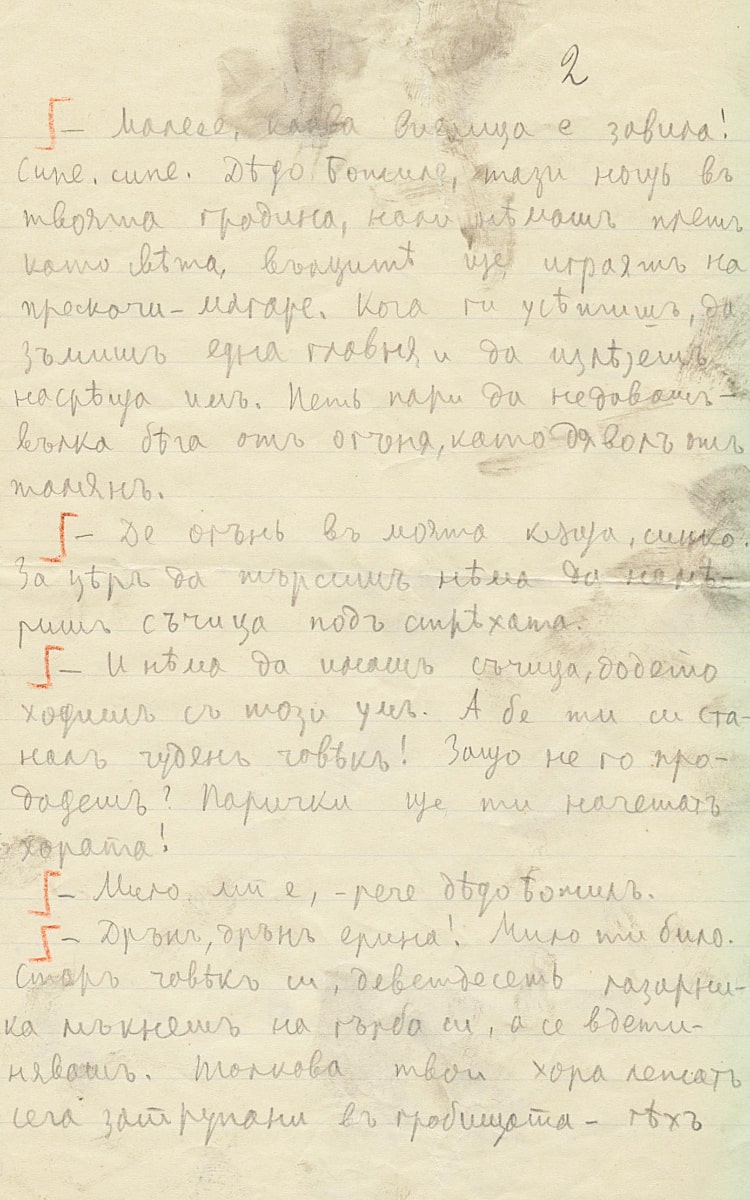 2
— Малеее, каква виелица е завила!
Сипе, сипе. Дѣдо Божиле, тази нощь въ
твоята градина, нали нѣмашъ плетъ
като свѣта, вълцитѣ ще играятъ на
прескочи-магаре. Кога ги усѣтишъ, да
зъмишъ една главня и да излѣзешъ
насрѣща имъ. Петь пари да недавашъ —
вълка бѣга отъ огъня, като дяволъ отъ
тамянъ.
— Де огънь въ моята кѫща, синко.
За цѣръ да търсишъ нѣма да намѣ-
ришъ съчица подъ стрѣхата.
— И нѣма да имашъ съчица, додето
ходишъ съ този умъ. А бе ти си ста-
налъ чуденъ човѣкъ! Защо не го про-
дадешъ? Парички ще ти начетатъ
хората!
— Мило ми е, — рече дѣдо Божилъ.
— Дрънъ, дрънъ ерина! Мило ти било.
Старъ човѣкъ си, деветдесеть лазарни-
ка мъкнешъ на гърба си, а се вдети-
нявашъ. Толкова твои хора лежатъ
сега затрупани въ гробищата — тѣхъ